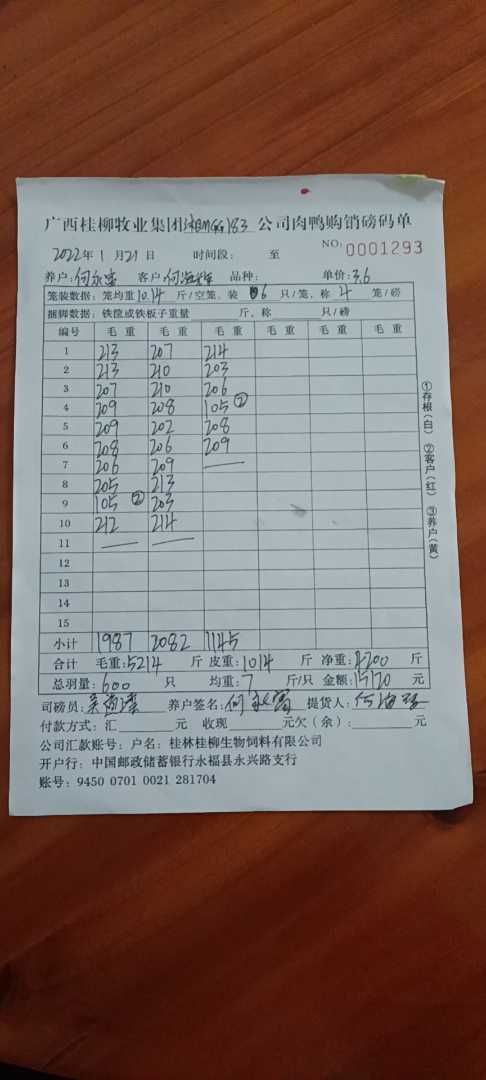 广西桂柳牧业集团湘MGG183公司肉鸭购销磅码单
2022年1月21日 时间段: 至 NO:0001293
养户:何永富 客户: 品种: 单价:3.6
笼装数据:笼均重10.14斤/空笼,装6只/笼,称4笼/磅
捆脚数据:铁筐或铁板子重量 斤,称 只/磅
编号 毛重 毛重 毛重 毛重 毛重 毛重
1 213 207 214
2 213 210 203
3 207 210 206
4 209 208 105②
5 209 202 208
6 208 206 209
7 206 209
8 205 213
9 105② 203
10 212 214
11
12
13
14
15
小计 1987 2082 1145
合计 毛重:5214斤 皮重:1014斤 净重:4200斤
总羽量:600只 均重:7斤/只 金额:15120元
司磅员: 养户签名:何永富 提货人:
付款方式:汇 元 收现 元欠(余): 元
公司汇款账号:户名:桂林桂柳生物饲料有限公司
开户行:中国邮政储蓄银行永福县永兴路支行
账号:9450 0701 0021 281704
①存根(白) ②客户(红) ③养户(黄)